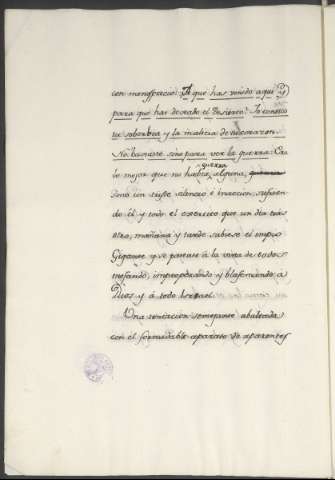 con menosprecio: A que has venido aqui? y
para que has dexado el Desierto? Yo conozco
tu soberbia y la malicia de tu corazon.
No has venido sino para ver la guerra: Era
lo mejor que no habia guerra alguna,
sino un triste silencio è inaccion, sufriendo
él y todo el exercito que un dia tras
otro, mañana y tarde subiese el impio
Gigante y se parase à la vista de todos
mofando, improperando y blasfemando à
Dios y à todo Israel.
Una tentacion semejante abultada
con el formidable aparato de aparentes